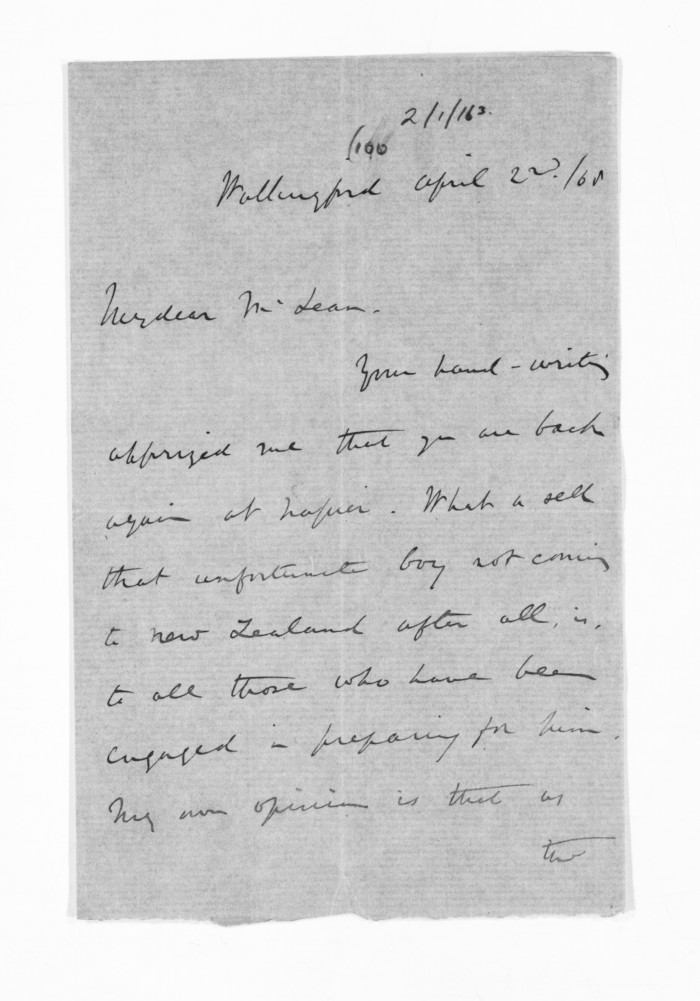 2/1/163.
(100
Wallingford April 22nd./68
My dear McLean.
Your hand-writing
apprized me that you are back
again at Napier. What a sell
that unfortunate boy not coming
to New Zealand after all, is,
to all those who have been
engaged in preparing for him.
My own opinion is that as
the